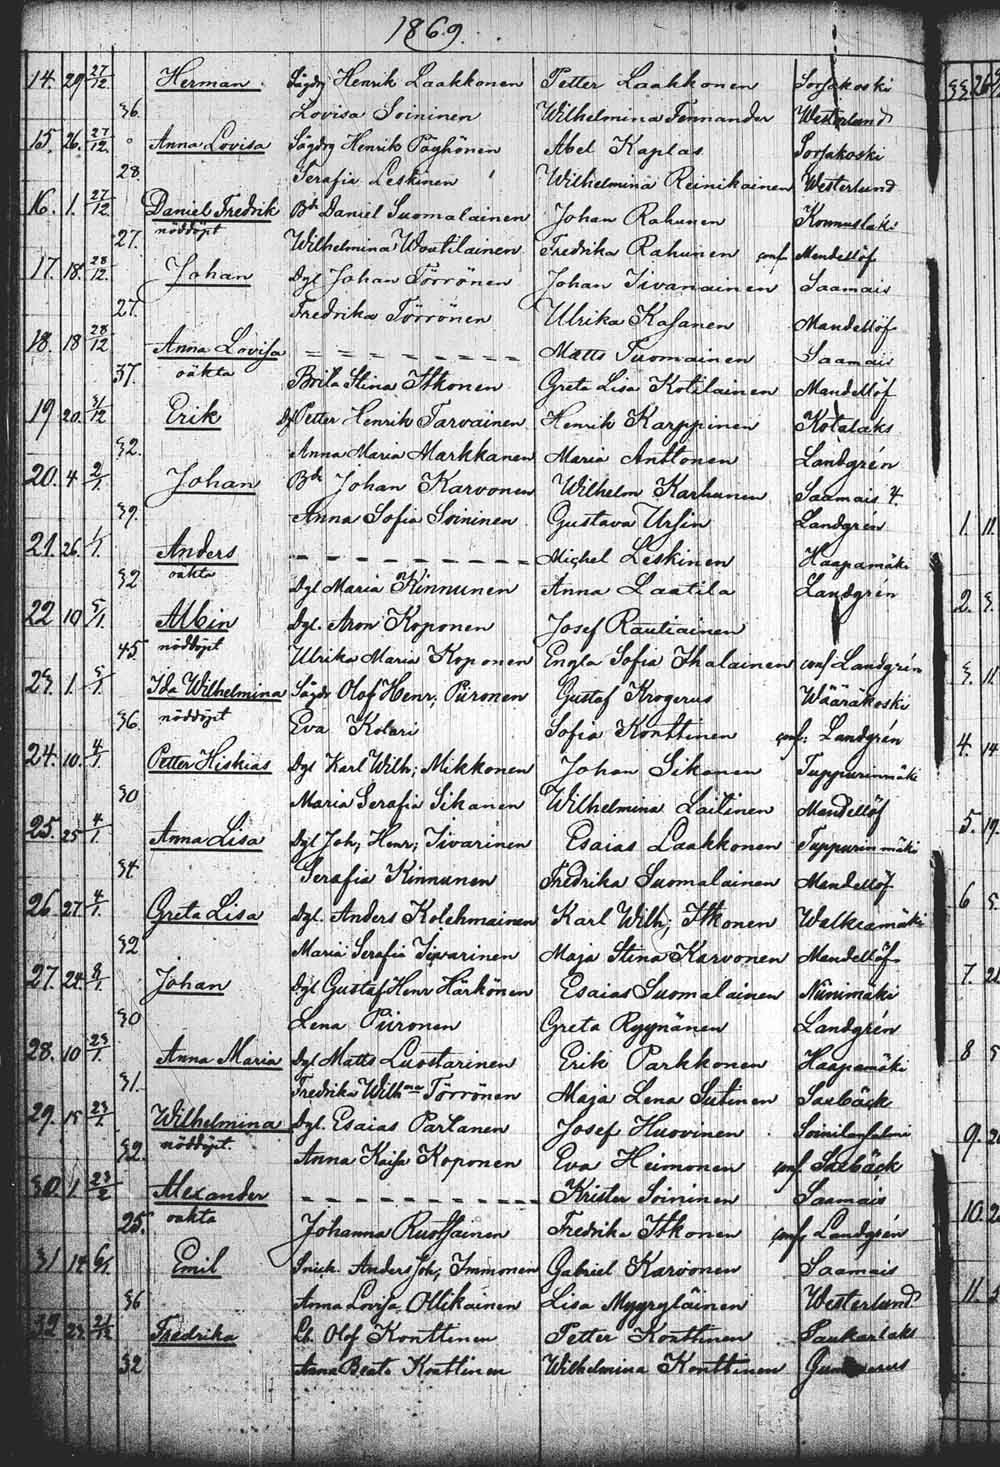 1869.
14. 29 27/12. Herman. Sågdrg Henrik Laakkonen Petter Laakkonen Sorsakoski
36. Lovisa Soininen Wilhelmina Fennander Westerlund
15. 26. 27/12. Anna Lovisa Sågdrg Henrik Pöyhönen Abel Kaplas Sorsakoski
28. Serafia Leskinen Wilhelmina Reinikainen Westerlund
16. 1. 27/12 Daniel Fredrik Bd Daniel Suomalainen Johan Rahunen Konnuslaks
27. nöddöpt Wilhelmina Woutilainen Fredrika Rahunen conf Mandellöf
17. 18. 28/12. Johan Dgl Johan Törrönen Johan Iivanainen Saamais
27. Fredrika Törrönen Ulrika Kasanen Mandellöf
18. 18 28/12 Anna Lovisa - - - - - - - Matts Tuomainen Saamais
37. oäkta Brita Stina Itkonen Greta Lisa Kotilainen Mandellöf
19 20. 31/12 Erik Dgl Petter Henrik Tarvainen Henrik Karppinen Kotalaks
32. Anna Maria Markkanen Maria Anttonen Landgrén
20. 4 2/1. Johan Bde Johan Karvonen Wilhelm Karhunen Saamais 4.
39. Anna Sofia Soininen Gustava Ursin Landgrén
21. 26. 1/1. Anders - - - - - - - Michel Leskinen Haapamäki
32 oäkta Dgl Maria Kinnunen Anna Laatila Landgrén
22 10 5/1. Albin Dgl. Aron Koponen Josef Rautiainen
45. nöddöpt Ulrika Maria Koponen Engla Sofia Ihalainen conf: Landgrén
23. 1. 5/1. Ida Wilhelmina Sågdr Olof Henr; Piironen Gustaf Krogerus Wääräkoski
36. nöddöpt Eva Kolari Sofia Konttinen conf: Landgrén
24. 10. 4/1. Petter Hiskias Dgl Karl Wilh; Mikkonen Johan Sikanen Tuppurinmäki
30 Maria Serafia Sikanen Wilhelmina Laitinen Mandellöf
25. 25 4/1. Anna Lisa Dgl Joh; Henr; Iivarinen Esaias Laakkonen Tuppurinmäki
34 Serafia Kinnunen Fredrika Suomalainen Mandellöf
26. 27. 4/1. Greta Lisa Dgl. Anders Kolehmainen Karl Wilh; Itkonen Walkiamäki
32 Maria Serafia Iivarinen Maja Stina Karvonen Mandellöf
27. 24. 8/1. Johan Dgl Gustaf Henr Härkönen Esaias Suomalainen Niinimäki
30 Lena Piironen Greta Ryynänen Landgrén
28. 10 23/1. Anna Maria Dgl Matts Luostarinen Erik Parkkonen Haapamäki
31. Fredrika Wilhma Törrönen Maja Lena Sutinen Saxbäck
29. 15 23/1. Wilhelmina Dgl. Esaias Partanen Josef Huovinen Soinilansalmi
32. nöddöpt. Anna Kaisa Koponen Eva Heimonen conf Saxbäck
30. 1 23/2 Alexander - - - - - - - Krister Soininen Saamais
25. oäkta Johanna Ruotsainen Fredrika Itkonen conf Landgrén
31 14 6/1. Emil Snick. Anders Joh; Immonen Gabriel Karvonen Saamais
36 Anna Lovisa Ollikainen Lisa Myyryläinen Westerlund
32 23. 21/12 Fredrika Lb. Olof Konttinen Petter Konttinen Saukarlaks
32 Anna Beata Konttinen Wilhelmina Konttinen